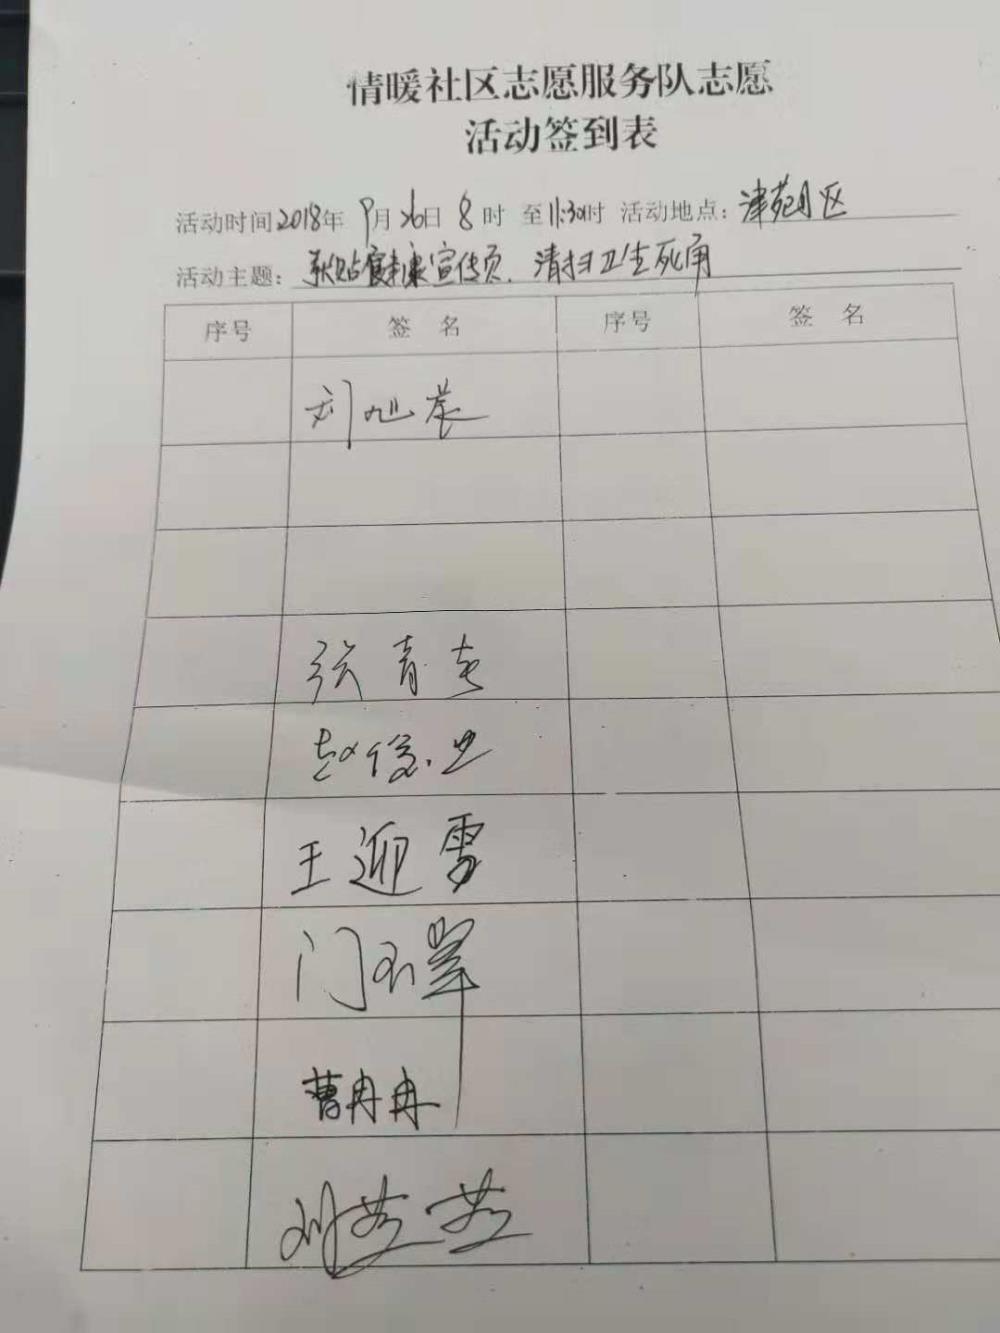 情暖社区志愿服务队志愿
活动签到表
活动时间2018年 9月26日 8时 至11:30时 活动地点：津苑社区
活动主题：张贴健康宣传页、清扫卫生死角
序号 签 名 序号 签 名
刘旭晨
张青
赵俊业
王迎雪
门
曹冉冉
刘芸芸